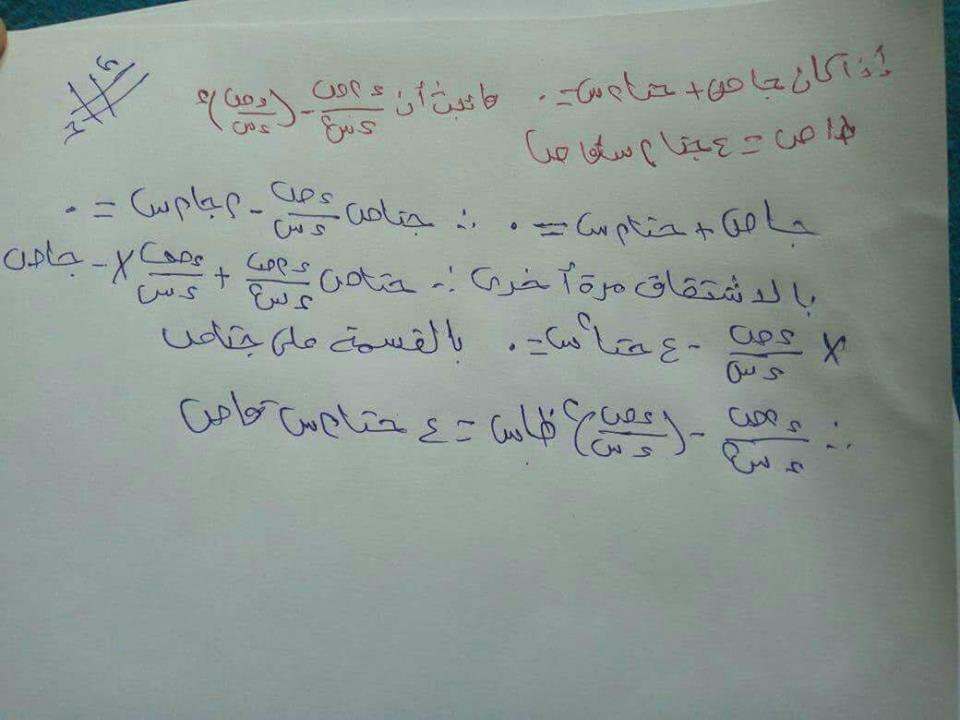 إذا كان جا ص + حتا ٢ س = ٠ فاثبت أن \frac{ء٢ص}{ء س٢} - (\frac{ء ص}{ء س})٢
ظا ص = ٤ جتا ٢ س قا ص
جا ص + حتا ٢ س = ٠ ∴ جتا ص \frac{ء ص}{ء س} - ٢ جا ٢ س = ٠
بالاشتقاق مرة أخرى ∴ حتا ص \frac{ء٢ص}{ء س٢} + \frac{ء ص}{ء س} × - جا ص
× \frac{ء ص}{ء س} - ٤ حتا ٢ س = ٠ بالقسمة على جتا ص
∴ \frac{ء٢ص}{ء س٢} - (\frac{ء ص}{ء س})٢ ظا س = ٤ حتا ٢ س قا ص